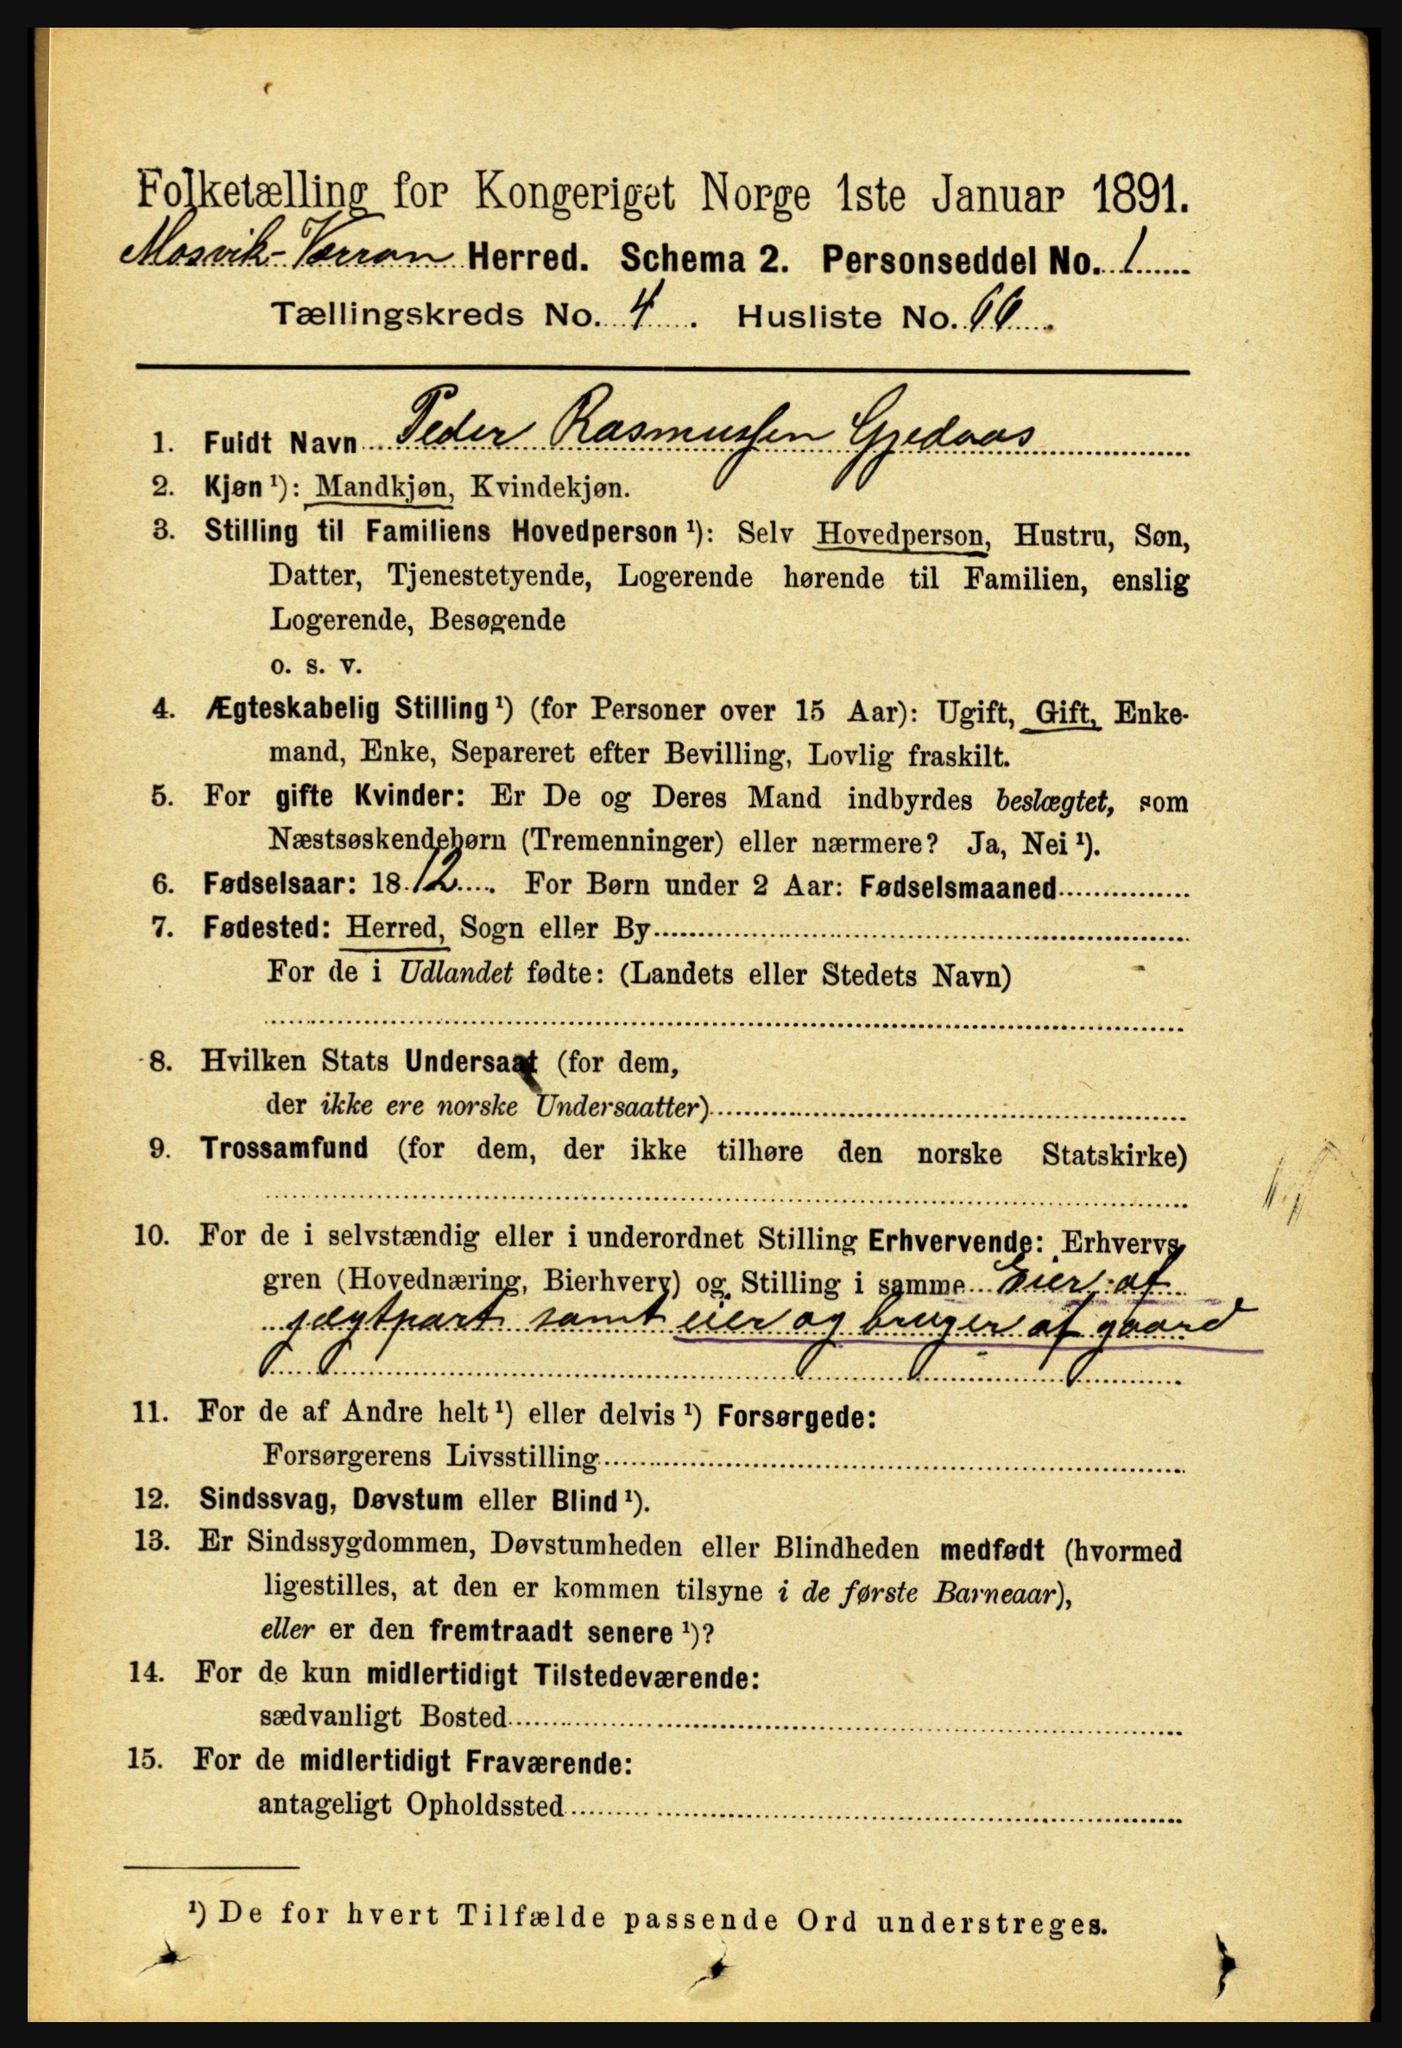 Folketælling for Kongeriget Norge 1ste Januar 1891.
Mosvik-Verran Herred. Schema 2. Personseddel No. 1
Tællingskreds No. 4. Husliste No. 66.
1. Fuldt Navn Peder Rasmussen Gjedaas
2. Kjøn ¹): Mandkjøn, Kvindekjøn.
3. Stilling til Familiens Hovedperson ¹): Selv Hovedperson, Hustru, Søn,
Datter, Tjenestetyende, Logerende hørende til Familien, enslig
Logerende, Besøgende
o. s. v.
4. Ægteskabelig Stilling ¹) (for Personer over 15 Aar): Ugift, Gift, Enke-
mand, Enke, Separeret efter Bevilling, Lovlig fraskilt.
5. For gifte Kvinder: Er De og Deres Mand indbyrdes beslægtet, som
Næstsøskendebørn (Tremenninger) eller nærmere? Ja, Nei ¹).
6. Fødselsaar: 1812. For Børn under 2 Aar: Fødselsmaaned
7. Fødested: Herred, Sogn eller By
For de i Udlandet fødte: (Landets eller Stedets Navn)
8. Hvilken Stats Undersaat (for dem,
der ikke ere norske Undersaatter)
9. Trossamfund (for dem, der ikke tilhøre den norske Statskirke)
10. For de i selvstændig eller i underordnet Stilling Erhvervende: Erhvervs-
gren (Hovednæring, Bierhverv) og Stilling i samme Eier af
jægtpart samt eier og bruger af gaard
11. For de af Andre helt ¹) eller delvis ¹) Forsørgede:
Forsørgerens Livsstilling
12. Sindssvag, Døvstum eller Blind ¹).
13. Er Sindssygdommen, Døvstumheden eller Blindheden medfødt (hvormed
ligestilles, at den er kommen tilsyne i de første Barneaar),
eller er den fremtraadt senere ¹)?
14. For de kun midlertidigt Tilstedeværende:
sædvanligt Bosted
15. For de midlertidigt Fraværende:
antageligt Opholdssted
¹) De for hvert Tilfælde passende Ord understreges.